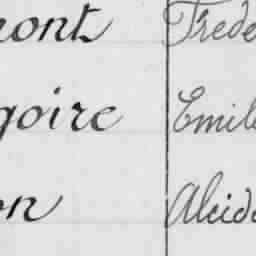 mont Frede
goire Emile
on Alcide